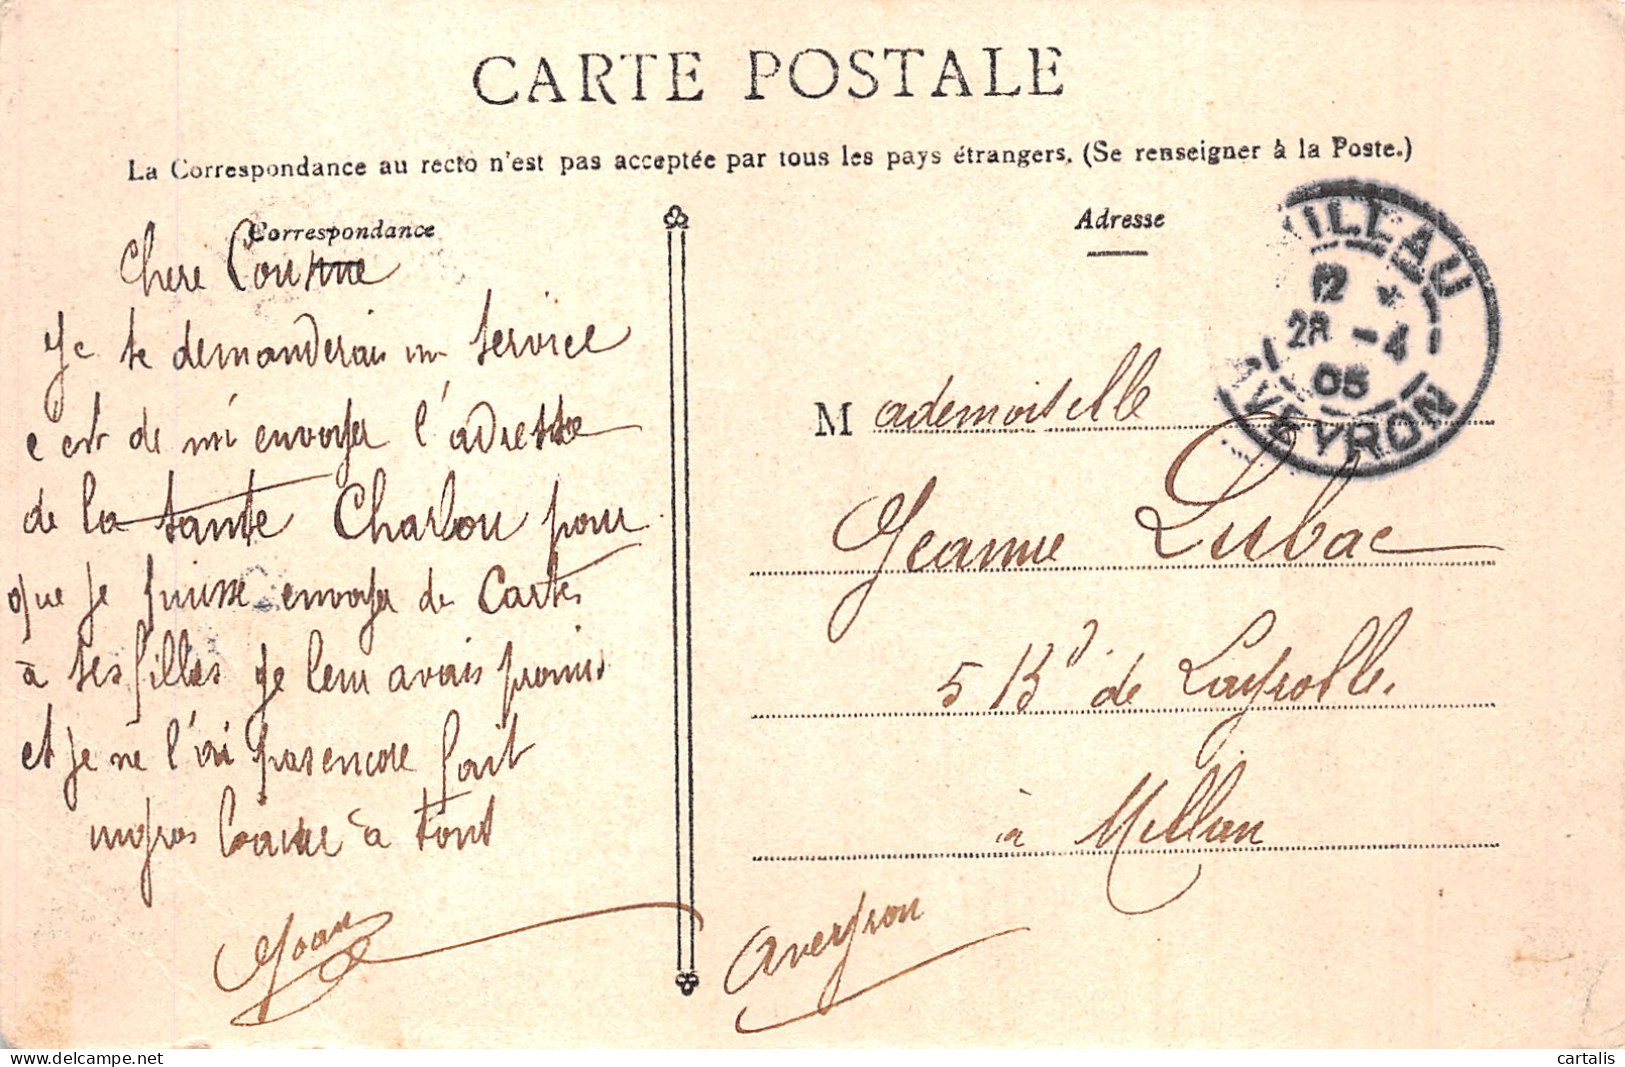 CARTE POSTALE
La Correspondance au recto n'est pas acceptée par tous les pays étrangers. (Se renseigner à la Poste.)
Correspondance
Chere Cousine
Je te demanderais un service
c est de m'envoyer l'adresse
de la tante Charlou pour
que je puisse envoyer de Cartes
à ses filles je leur avais promis
et je ne l'ai pas encore fait
gros à tout
Adresse
MILLAU
12
28 - 4
05
AVEYRON
Mademoiselle
Jeanne Lubac
5 Bd de Layrolle.
à Millau
Aveyron
cartalis